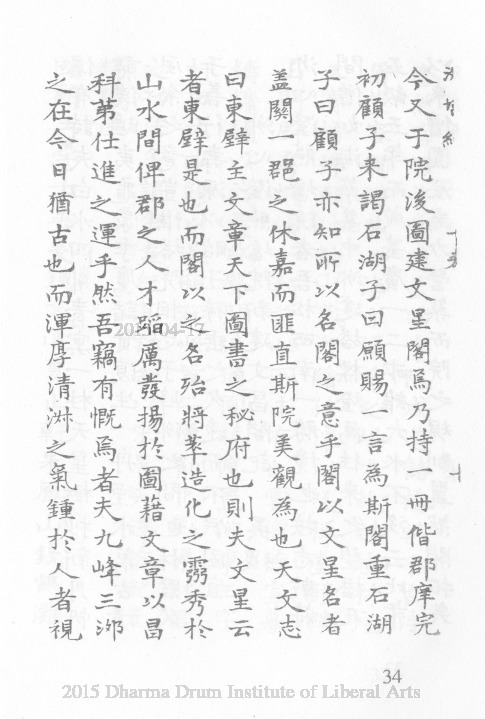 今又于院後圖建文星閣焉乃持一冊偕郡庠完
初顧子来謁石湖子曰願賜一言為斯閣重石湖
子曰顧子亦知所以名閣之意乎閣以文星名者
盖闕一郡之休嘉而匪直斯院美觀為也天文志
曰東壁主文章天下圖書之秘府也則夫文星云
者東壁是也而閣以之名殆將萃造化之靈秀於
山水間俾郡之人才蹈厲發揚於圖藉文章以昌
科苐仕進之運乎然吾竊有慨焉者夫九峰三泖
之在今日猶古也而渾厚清淋之氣鍾於 者視
2015-04-17
34
2015 Dharma Drum Institute of Liberal Arts